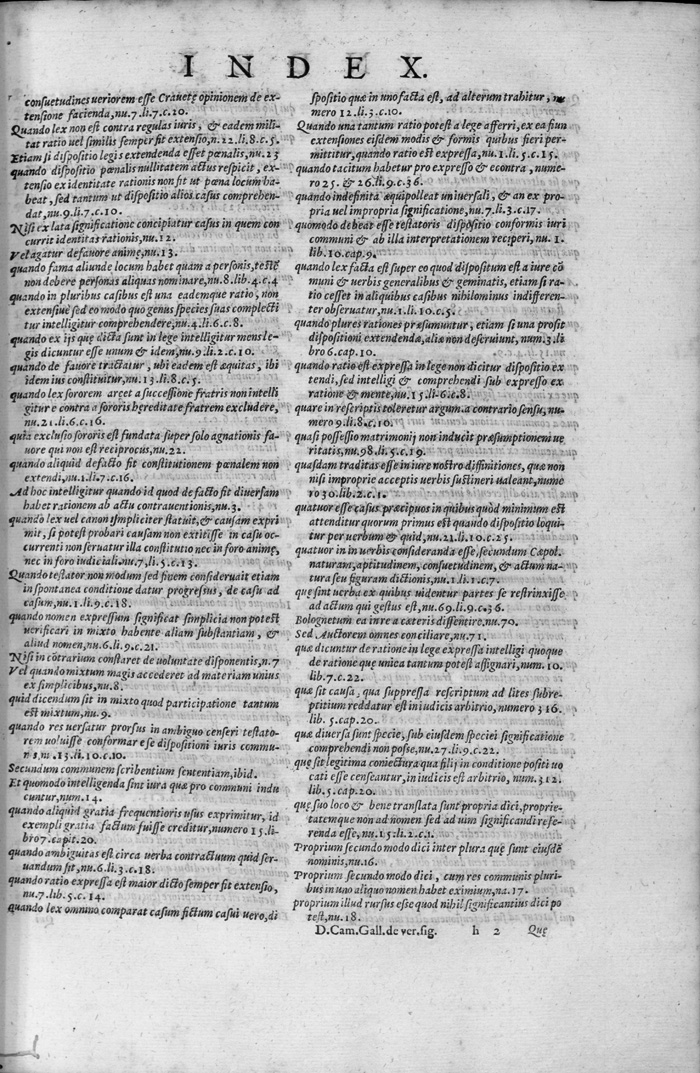 INDEX.
consuetudines ueriorem esse Crauetę opinionem de ex-
tensione facienda, nu. 7. li. 7. c. 20.
Quando lex non est contra regulas iuris, & eadem mili-
tat ratio uel similis semper fit extensio, n. 22. li. 8. c. 5.
Etiam si dispositio legis extendenda esset pœnalis, nu. 23
quando dispositio pœnalis nullitatem actus respicit, ex-
tensio ex identitate rationis non fit ut pœna locum ha-
beat, sed tantum ut dispositio alios casus comprehen-
dat, nu. 9. li. 7. c. 10.
Nisi ex lata significatione concipiatur casus in quem con
currit identitas rationis, nu. 12.
Vel agatur de fauore animę, nu. 13.
quando fama aliunde locum habet quam a personis, testẽ
non debere personas aliquas nominare, nu. 8. lib. 4. c. 4
quando in pluribus casibus est una eademque ratio, non
extensiue sed eo modo quo genus species suas complecti
tur intelligitur comprehendere, nu. 4. li. 6. c. 8.
quando ex ijs quę dicta sunt in lege intelligitur mens le-
gis dicuntur esse unum & idem, nu. 9. li. 2. c. 10.
quando de fauore tractatur, ubi eadem est æquitas, ibi
idem ius constituitur, nu. 13. li. 8. c. 5.
quando lex sororem arcet a successione fratris non intelli
gitur e contra a sororis hęreditate fratrem excludere,
nu. 21. li. 6. c. 16.
quia exclusio sororis est fundata super solo agnationis fa-
uore qui non est reciprocus, nu. 22.
quando aliquid de facto fit constitutionem pœnalem non
extendi, nu. 1. li. 7. c. 16.
Ad hoc intelligitur quando id quod de facto fit diuersam
habet rationem ab actu contrauentionis, nu. 3.
quando lex uel canon simpliciter statuit, & causam expri
mit, si potest probari causam non extitisse in casu oc-
currenti non seruatur illa constitutio nec in foro animę,
nec in foro iudiciali, nu. 7. li. 5. c. 13.
Quando testator non modum sed finem considerauit etiam
in spontanea conditione datur progressus, de casu ad
casum, nu. 1. li. 9. c. 18.
quando nomen expressum significat simplicia non potest
uerificari in mixto habente aliam substantiam, &
aliud nomen, nu. 6. li. 9. c. 21.
Nisi in cõtrarium constaret de uoluntate disponentis, n. 7
Vel quando mixtum magis accederet ad materiam unius
ex simplicibus, nu. 8.
quid dicendum sit in mixto quod participatione tantum
est mixtum, nu. 9.
quando res uersatur prorsus in ambiguo censeri testato-
rem uoluisse conformare se se dispositioni iuris commu-
nis, nu. 13. li. 10. c. 10.
Secundum communem scribentium sententiam, ibid.
Et quomodo intelligenda sint iura quæ pro communi indu
cuntur, num. 14.
quando aliquid gratia frequentioris usus exprimitur, id
exempli gratia factum fuisse creditur, numero 15. li-
bro 7. capit. 20.
quando ambiguitas est circa uerba contractuum quid ser-
uandum sit, nu. 6. li. 3. c. 18.
quando ratio expressa est maior dicto semper fit extensio,
nu. 7. lib. 5. c. 14.
quando lex omnino comparat casum fictum casui uero, di
spositio quæ in uno facta est, ad alterum trahitur, nu
mero 12. li. 3. c. 10.
Quando una tantum ratio potest a lege afferri, ex ea fiun
extensiones eisdem modis & formis quibus fieri per-
mittitur, quando ratio est expressa, nu. 1. li. 5. c. 15.
quando tacitum habetur pro expresso & econtra, nu-
mero 25. & 26. li. 9. c. 36.
quando indefinita æquipolleat uniuersali, & an ex pro-
pria uel impropria significatione, nu. 7. li. 3. c. 17.
quomodo debeat esse testatoris dispositio conformis iuri
communi & ab illa interpretationem recipere, nu. 1.
lib. 10. cap. 9.
quando lex facta est super eo quod dispositum est a iure cõ
muni & uerbis generalibus & geminatis, etiam si ra-
tio cesset in aliquibus casibus nihilominus indifferen-
ter obseruatur, nu. 1. li. 10. c. 5.
quando plures rationes præsumuntur, etiam si una prosit
dispositioni extendendæ, aliæ non deseruiunt, num. 3. li
bro 6. cap. 10.
quando ratio est expressa in lege non dicitur dispositio ex
tendi, sed intelligi & comprehendi sub expresso ex
ratione & mente, nu. 15. li. 6. c. 8.
quare in rescriptis toleretur argum. a contrario sensu, nu-
mero 9. li. 8. c. 10.
quasi possessio matrimonij non inducit præsumptionem ue
ritatis, nu. 98. li. 5. c. 19.
quasdam traditas esse in iure nostro diffinitiones, quæ non
nisi improprie acceptis uerbis sustineri ualeant, nume
ro 30. lib. 2. c. 1.
quatuor esse casus præcipuos in quibus quòd minimum est
attenditur quorum primus est quando dispositio loqui-
tur per uerbum & quid, nu. 21. li. 10. c. 25.
quatuor in in uerbis consideranda esse, secundum Cæpol.
naturam, aptitudinem, consuetudinem, & actum na-
tura seu figuram dictionis, nu. 1. li. 1. c. 7.
quę sint uerba ex quibus uidentur partes se restrinxisse
ad actum qui gestus est, nu. 69. li. 9. c. 36.
Bolognetum ea in re a cæteris dissentire, nu. 70.
Sed Auctorem omnes conciliare, nu. 71.
quæ dicuntur de ratione in lege expressa intelligi quoque
de ratione quę unica tantum potest assignari, num. 10.
lib. 7. c. 22.
quæ sit causa, qua suppressa rescriptum ad lites subre-
ptitium reddatur est in iudicis arbitrio, numero 316.
lib. 5. cap. 20.
quæ diuersa sunt specie, sub eiusdem speciei significatione
comprehendi non posse, nu. 27. li. 9. c. 22.
quę sit legitima coniectura qua filij in conditione positi uo
cati esse censeantur, in iudicis est arbitrio, num. 312.
li. 5. cap. 20.
quę suo loco & bene translata sunt propria dici, proprie-
tatemque non ad nomen sed ad uim significandi refe-
renda esse, nu. 15. li. 2. c. 1.
Proprium secundo modo dici inter plura quę sunt eiusdẽ
nominis, nu. 16.
Proprium secundo modo dici, cum res communis pluri-
bus in uno aliquo nomen habet eximium, na. 17.
proprium illud rursus esse quod nihil significantius dici po
test, nu. 18.
D. Cam. Gall. de ver. sig. h 2 Quę